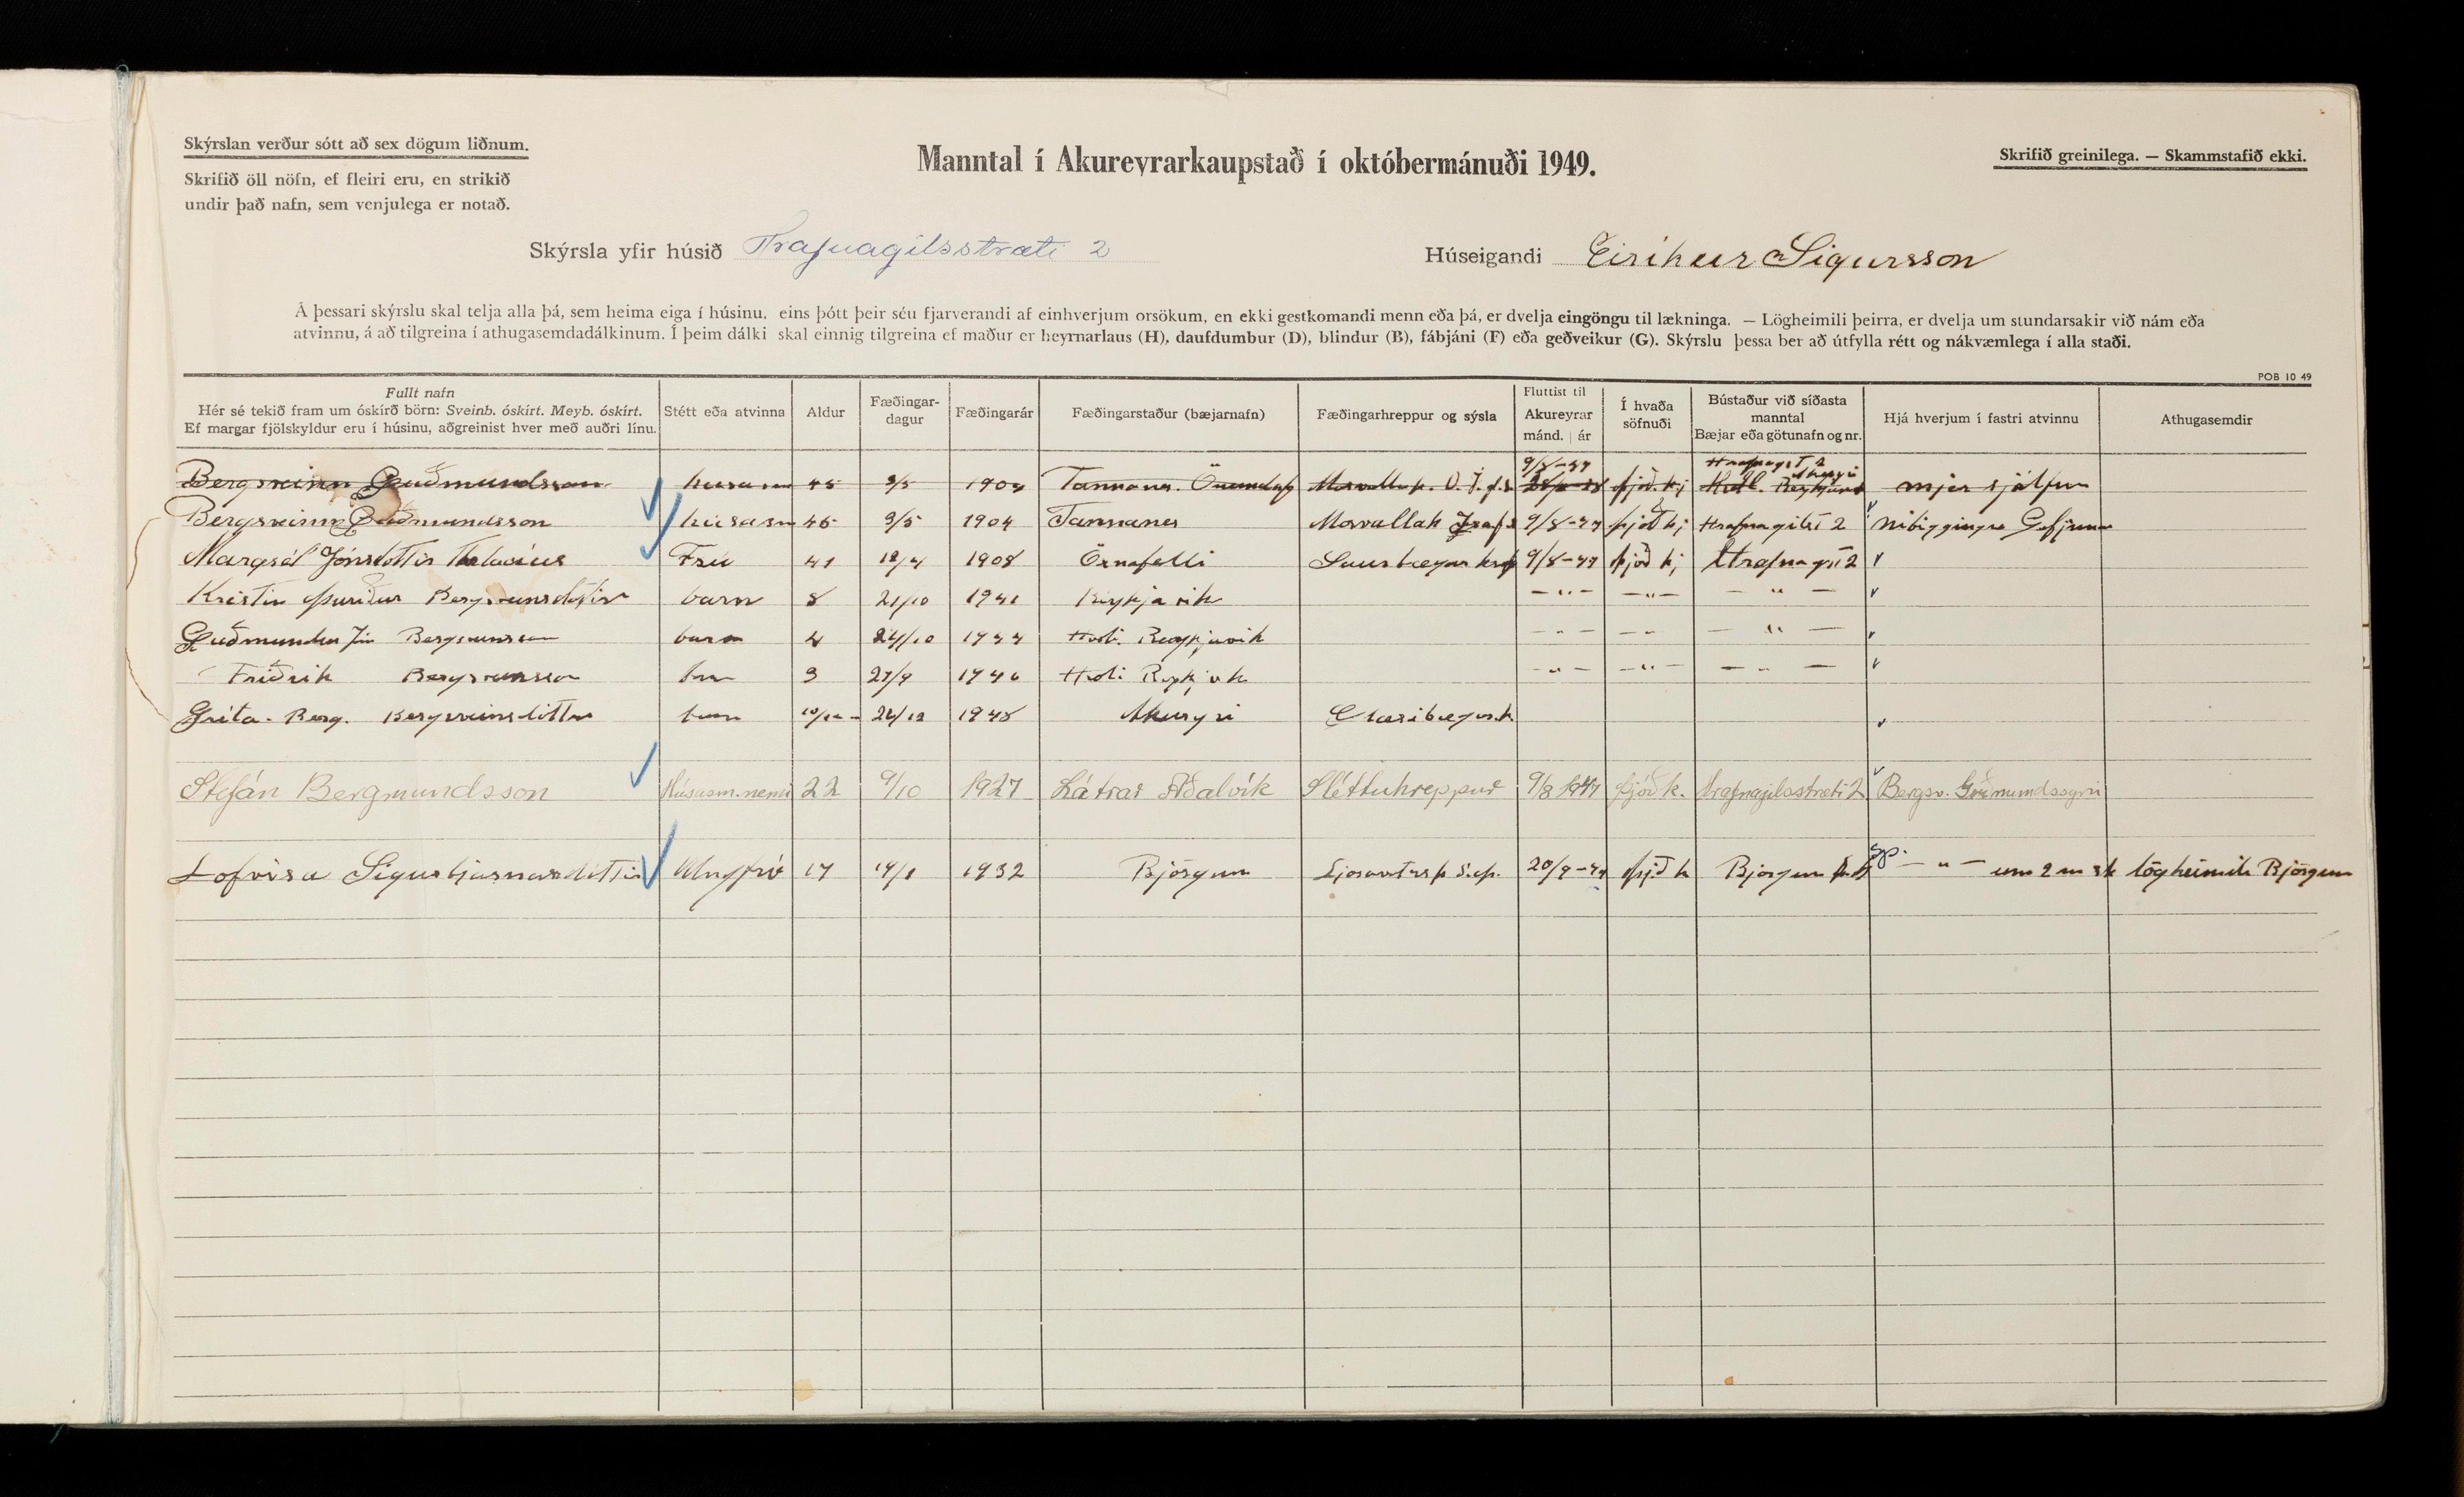 Skýrslan verður sótt að sex dögum liðnum.
Skrifið öll nöfn, ef fleiri eru, en strikið
undir það nafn, sem venjulega er notað.
Manntal í Akureyrarkaupstað í októbermánuði 1949.
Skrifið greinilega. — Skammstafið ekki.
Skýrsla yfir húsið Hrafnagilsstræti 2
Húseigandi Eiríkur Sigursson
Á þessari skýrslu skal telja alla þá, sem heima eiga í húsinu, eins þótt þeir séu fjarverandi af einhverjum orsökum, en ekki gestkomandi menn eða þá, er dvelja eingöngu til lækninga. — Lögheimili þeirra, er dvelja um stundarsakir við nám eða
atvinnu, á að tilgreina í athugasemdadálkinum. Í þeim dálki skal einnig tilgreina ef maður er heyrnarlaus (H), daufdumbur (D), blindur (B), fábjáni (F) eða geðveikur (G). Skýrslu þessa ber að útfylla rétt og nákvæmlega í alla staði.
POB 10 49
Fullt nafn
Hér sé tekið fram um óskírð börn: Sveinb. óskírt. Meyb. óskírt.
Ef margar fjölskyldur eru í húsinu, aðgreinist hver með auðri línu.
Stétt eða atvinna
Aldur
Fæðingar-
dagur
Fæðingarár
Fæðingarstaður (bæjarnafn)
Fæðingarhreppur og sýsla
Fluttist til
Akureyrar
mánd. | ár
Í hvaða
söfnuði
Bústaður við síðasta
manntal
Bæjar eða götunafn og nr.
Hjá hverjum í fastri atvinnu
Athugasemdir
Bergsveinn Guðmundsson húsasm 45 9/5 1904 Tannanes 9/8-47 þjóð.kj mjer sjálfum
Bergsveinn Guðmundsson húsasm 45 9/5 1904 Tannanes Mosvallah 9/8-47 þjóð kj Hrafnagilst 2 Gefjunar
Margrét Jónsdóttir Frú 41 1908 Öxnafelli Saurbæjar 9/8-47 þjóð kj Hrafnagst 2
Kristín Þuríður Bergsveinsdóttir barn 8 21/10 1941 Reykjavík — " — — " — — " —
Guðmundur Jón Bergsveinsson barn 4 24/10 1944 Reykjavík — " — — " — — " —
Friðrik Bergsveinsson barn 3 1946 — " — — " — — " —
Gríta Berg. Bergsveinsdóttir barn 1948 Akureyri Glæsibæjarh
Stefán Bergmundsson Húsasm.nemi 22 9/10 1927 Látrar Aðalvík Sléttuhreppur 9/8 1947 þjóðk. Hrafnagilsstræti 2 Bergsv. Guðmundssyni
Lofvísa Sigurbjarnardóttir Ungfrú 17 14/8 1932 Björgum 20/9-49 þjóð k Björgum — " — um 2 m sk lögheimili Björgum